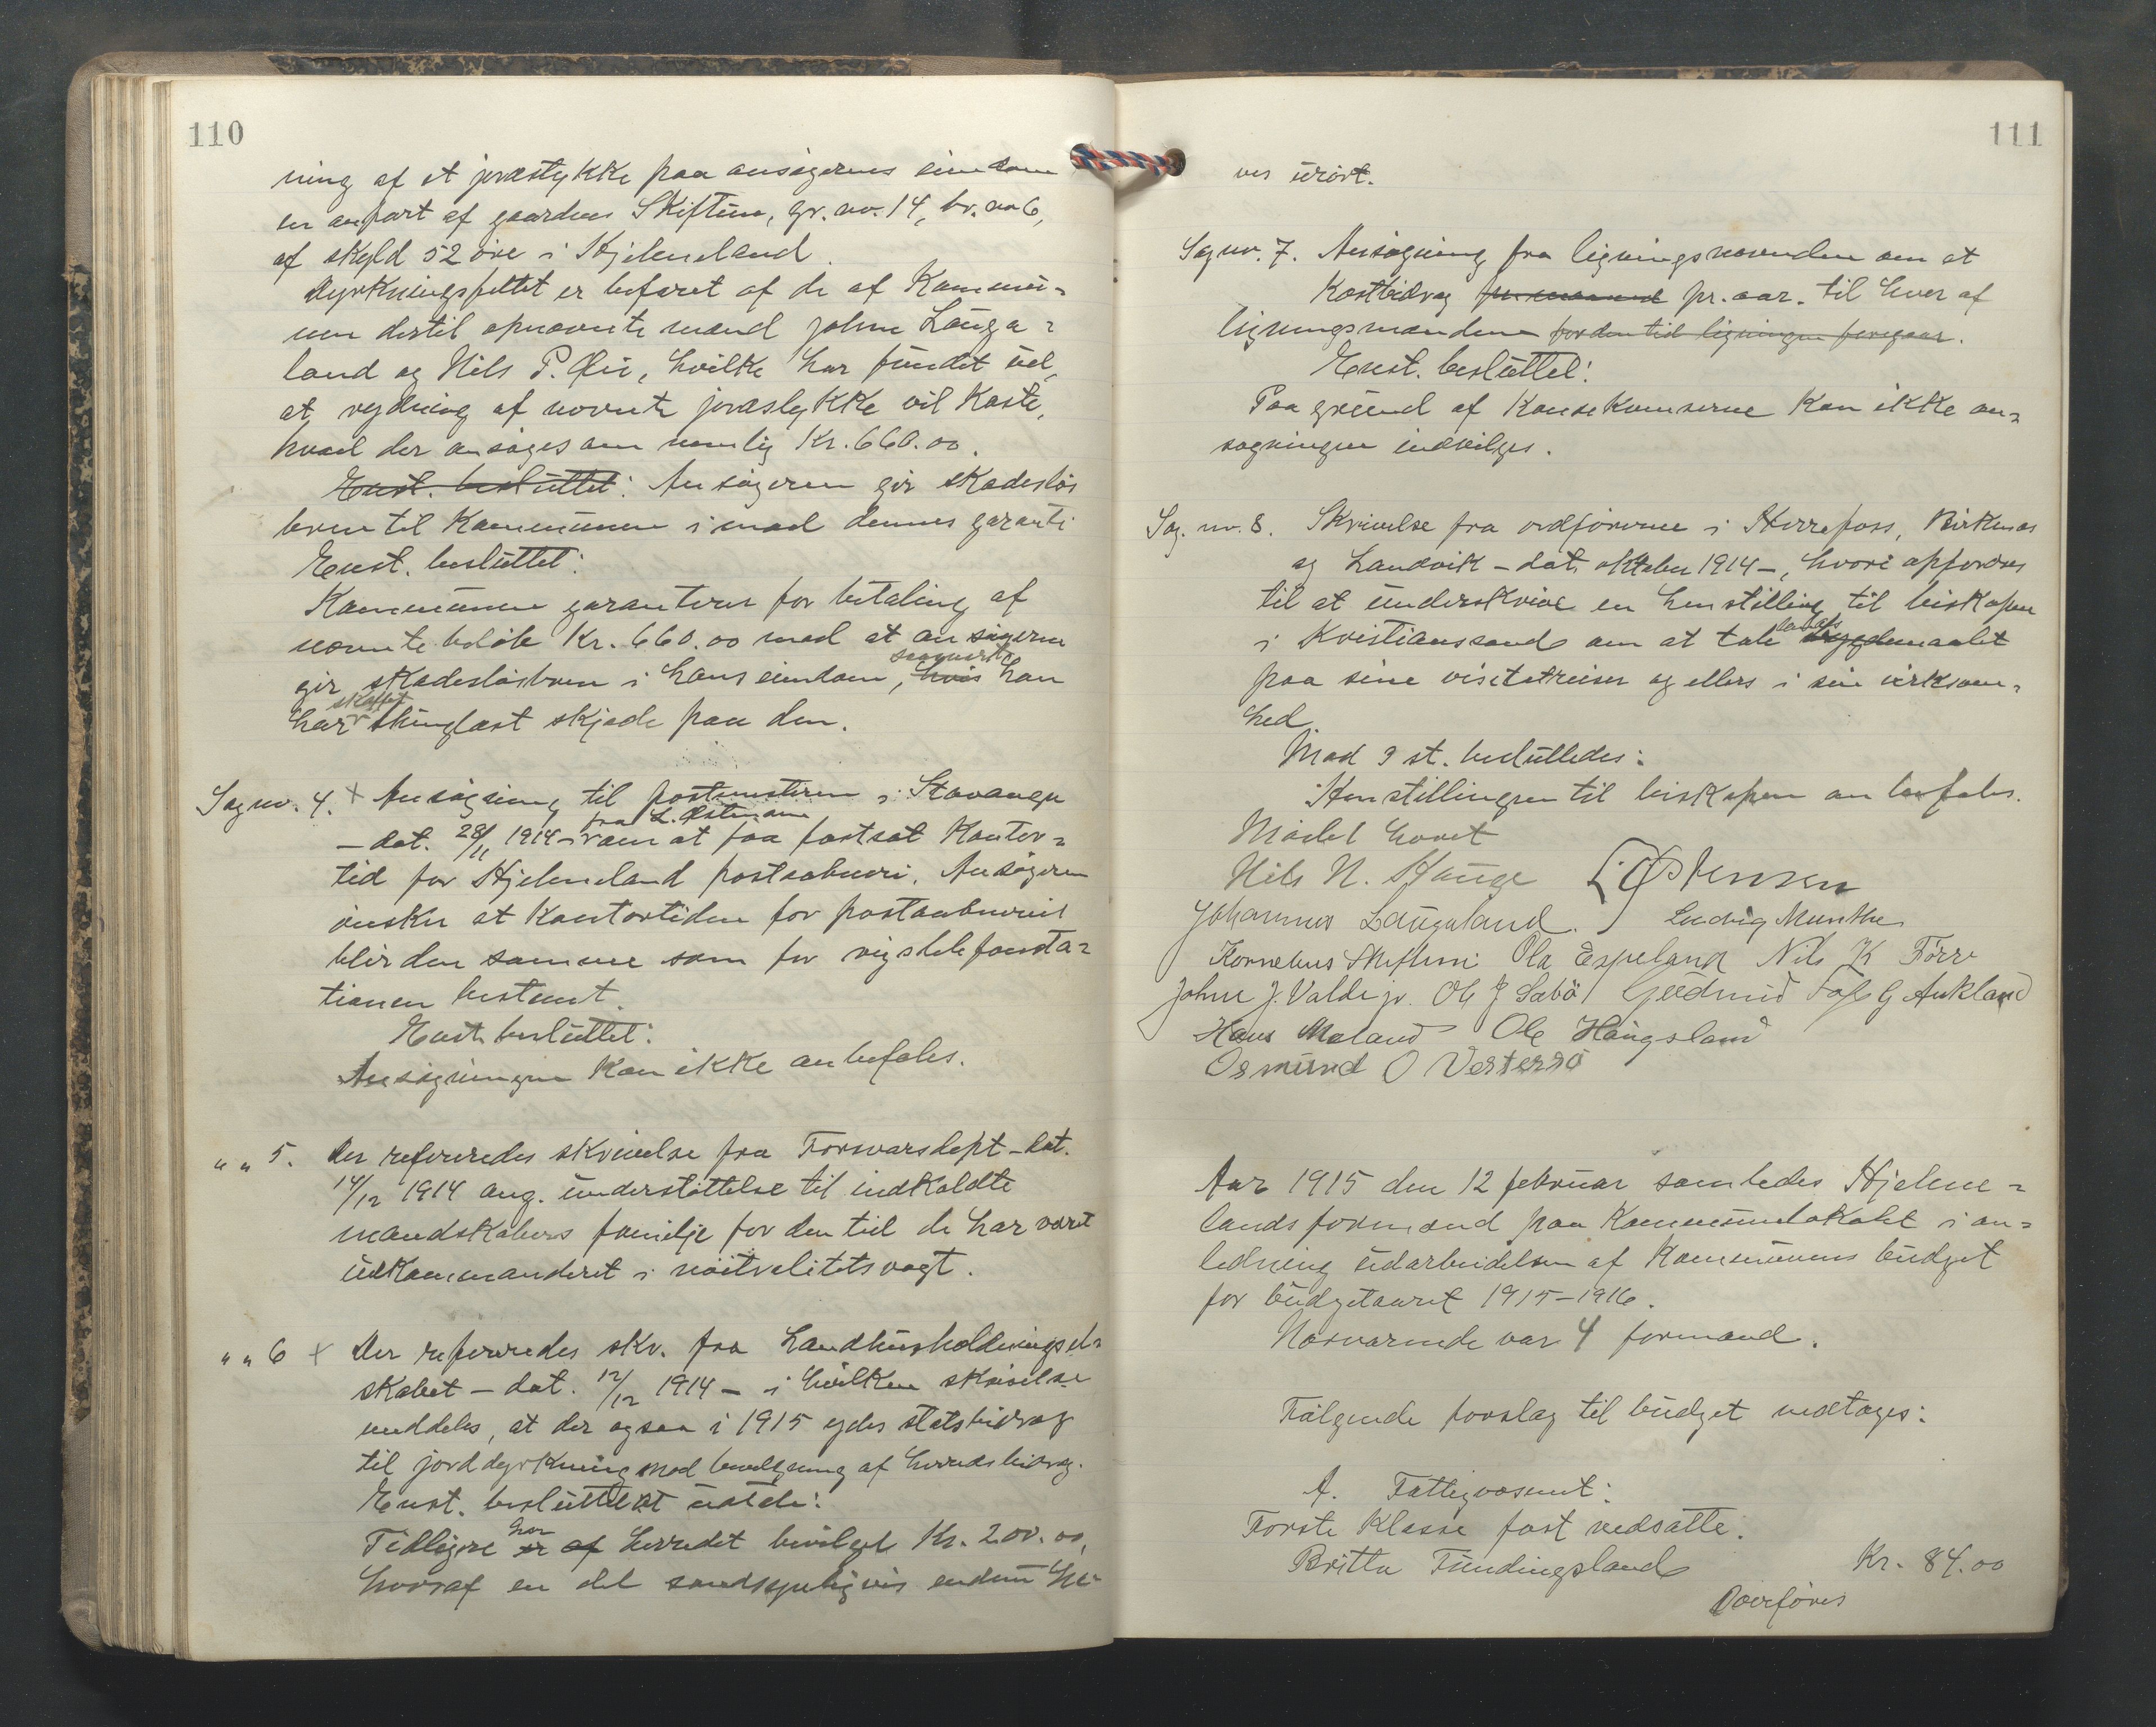 110
ning af et jordstykke paa ansøgerens eiendom
en anpart af gaarden Skiftun, gr. no. 14, br. no 6,
af skyld 52 öre i Hjelmeland.
Dyrkningsfeltet er befaret af de af Kommu-
nen dertil opnævnte mænd Johne Lauga-
land og Nils P. Riis, hvilke har fundet ud,
at rydning af nævnte jordstykke vil koste,
hvad der ansøges om nemlig Kr. 660.00.
Enst. besluttet: Ansøgeren gir skadeslös
brev til Kommunen imod dennes garanti
Enst. besluttet:
Kommunen garanterer for betaling af
nævnte beløb Kr. 660.00 mod at ansøgeren
gir skadeslösbrev i hans eiendom, hvis saasnart han
har skaffet thinglæst skjøde paa den.
Sag no. 4. + Ansøgning til postmesteren i Stavanger
fra L. Østensen
– dat. 28/11 1914 – om at faa fastsat Kontor-
tid for Hjelmeland postaabneri. Ansøgeren
önsker at Kontortiden for postaabneriet
blir den samme som for rigstelefonsta-
tionen bestemt.
Enst. besluttet:
Ansøgningen kan ikke anbefales.
" " 5. Der refereredes skrivelse fra Forsvarsdept – dat.
14/12 1914 ang. understöttelse til indkaldte
mandskabers familje for den tid de har været
udkommanderet i nöitralitetsvagt.
" " 6 + Der refereredes skr. fra Landhusholdningssel-
skabet – dat. 12/12 1914 – i hvilken skrivelse
meddeles, at der ogsaa i 1915 ydes statsbidrag
til jorddyrkning mod bevilgning af herredsbidrag.
Enst. besluttet at uttale:
Tidligere er af har herredet bevilget Kr. 200.00,
hvoraf en del sandsynligvis endnu he-
111
ver urört.
Sag no. 7. Ansøgning fra ligningsnævnden om et
Kostbidrag per maaned pr. aar. til hver af
ligningsmændene for den tid ligningen foregaar.
Enst. besluttet:
Paa grund af Konsekvenserne kan ikke an-
søgningen indvilges.
Sag. no. 8. Skrivelse fra ordförerne i Herrefoss, Birkenes
og Landvik – dat. oktober 1914 –, hvori opfordres
til at underskrive en henstilling til biskopen
i Kristianssand om at tale lands bygdemaalet
paa sine visitatreiser og ellers i sin virksom-
hed.
Mod 3 st. besluttedes:
Henstillingen til biskopen anbefales.
Mödet hævet
Nils N. Hauge L Østensen
Johannes Laugaland. Ludvig Munthe
Kornelius Skiftun Ola Espeland Nils K Förre
Johne J. Valde jr. Ole J Sæbö Gudmund Tofte G Aukland
Hans Meland Ole Haugsland
Osmund O Vestersö
Aar 1915 den 12 februar samledes Hjelme-
lands formænd paa Kommunelokalet i an-
ledning udarbeidelsen af Kommunens budget
for budgetaaret 1915–1916.
Nærværende var 4 formænd.
Fölgende forslag til budget vedtages:
A. Fattigvæsenet:
Forste Klasse fast nedsatte:
Britta Fundingsland Kr. 84.00
Overföres